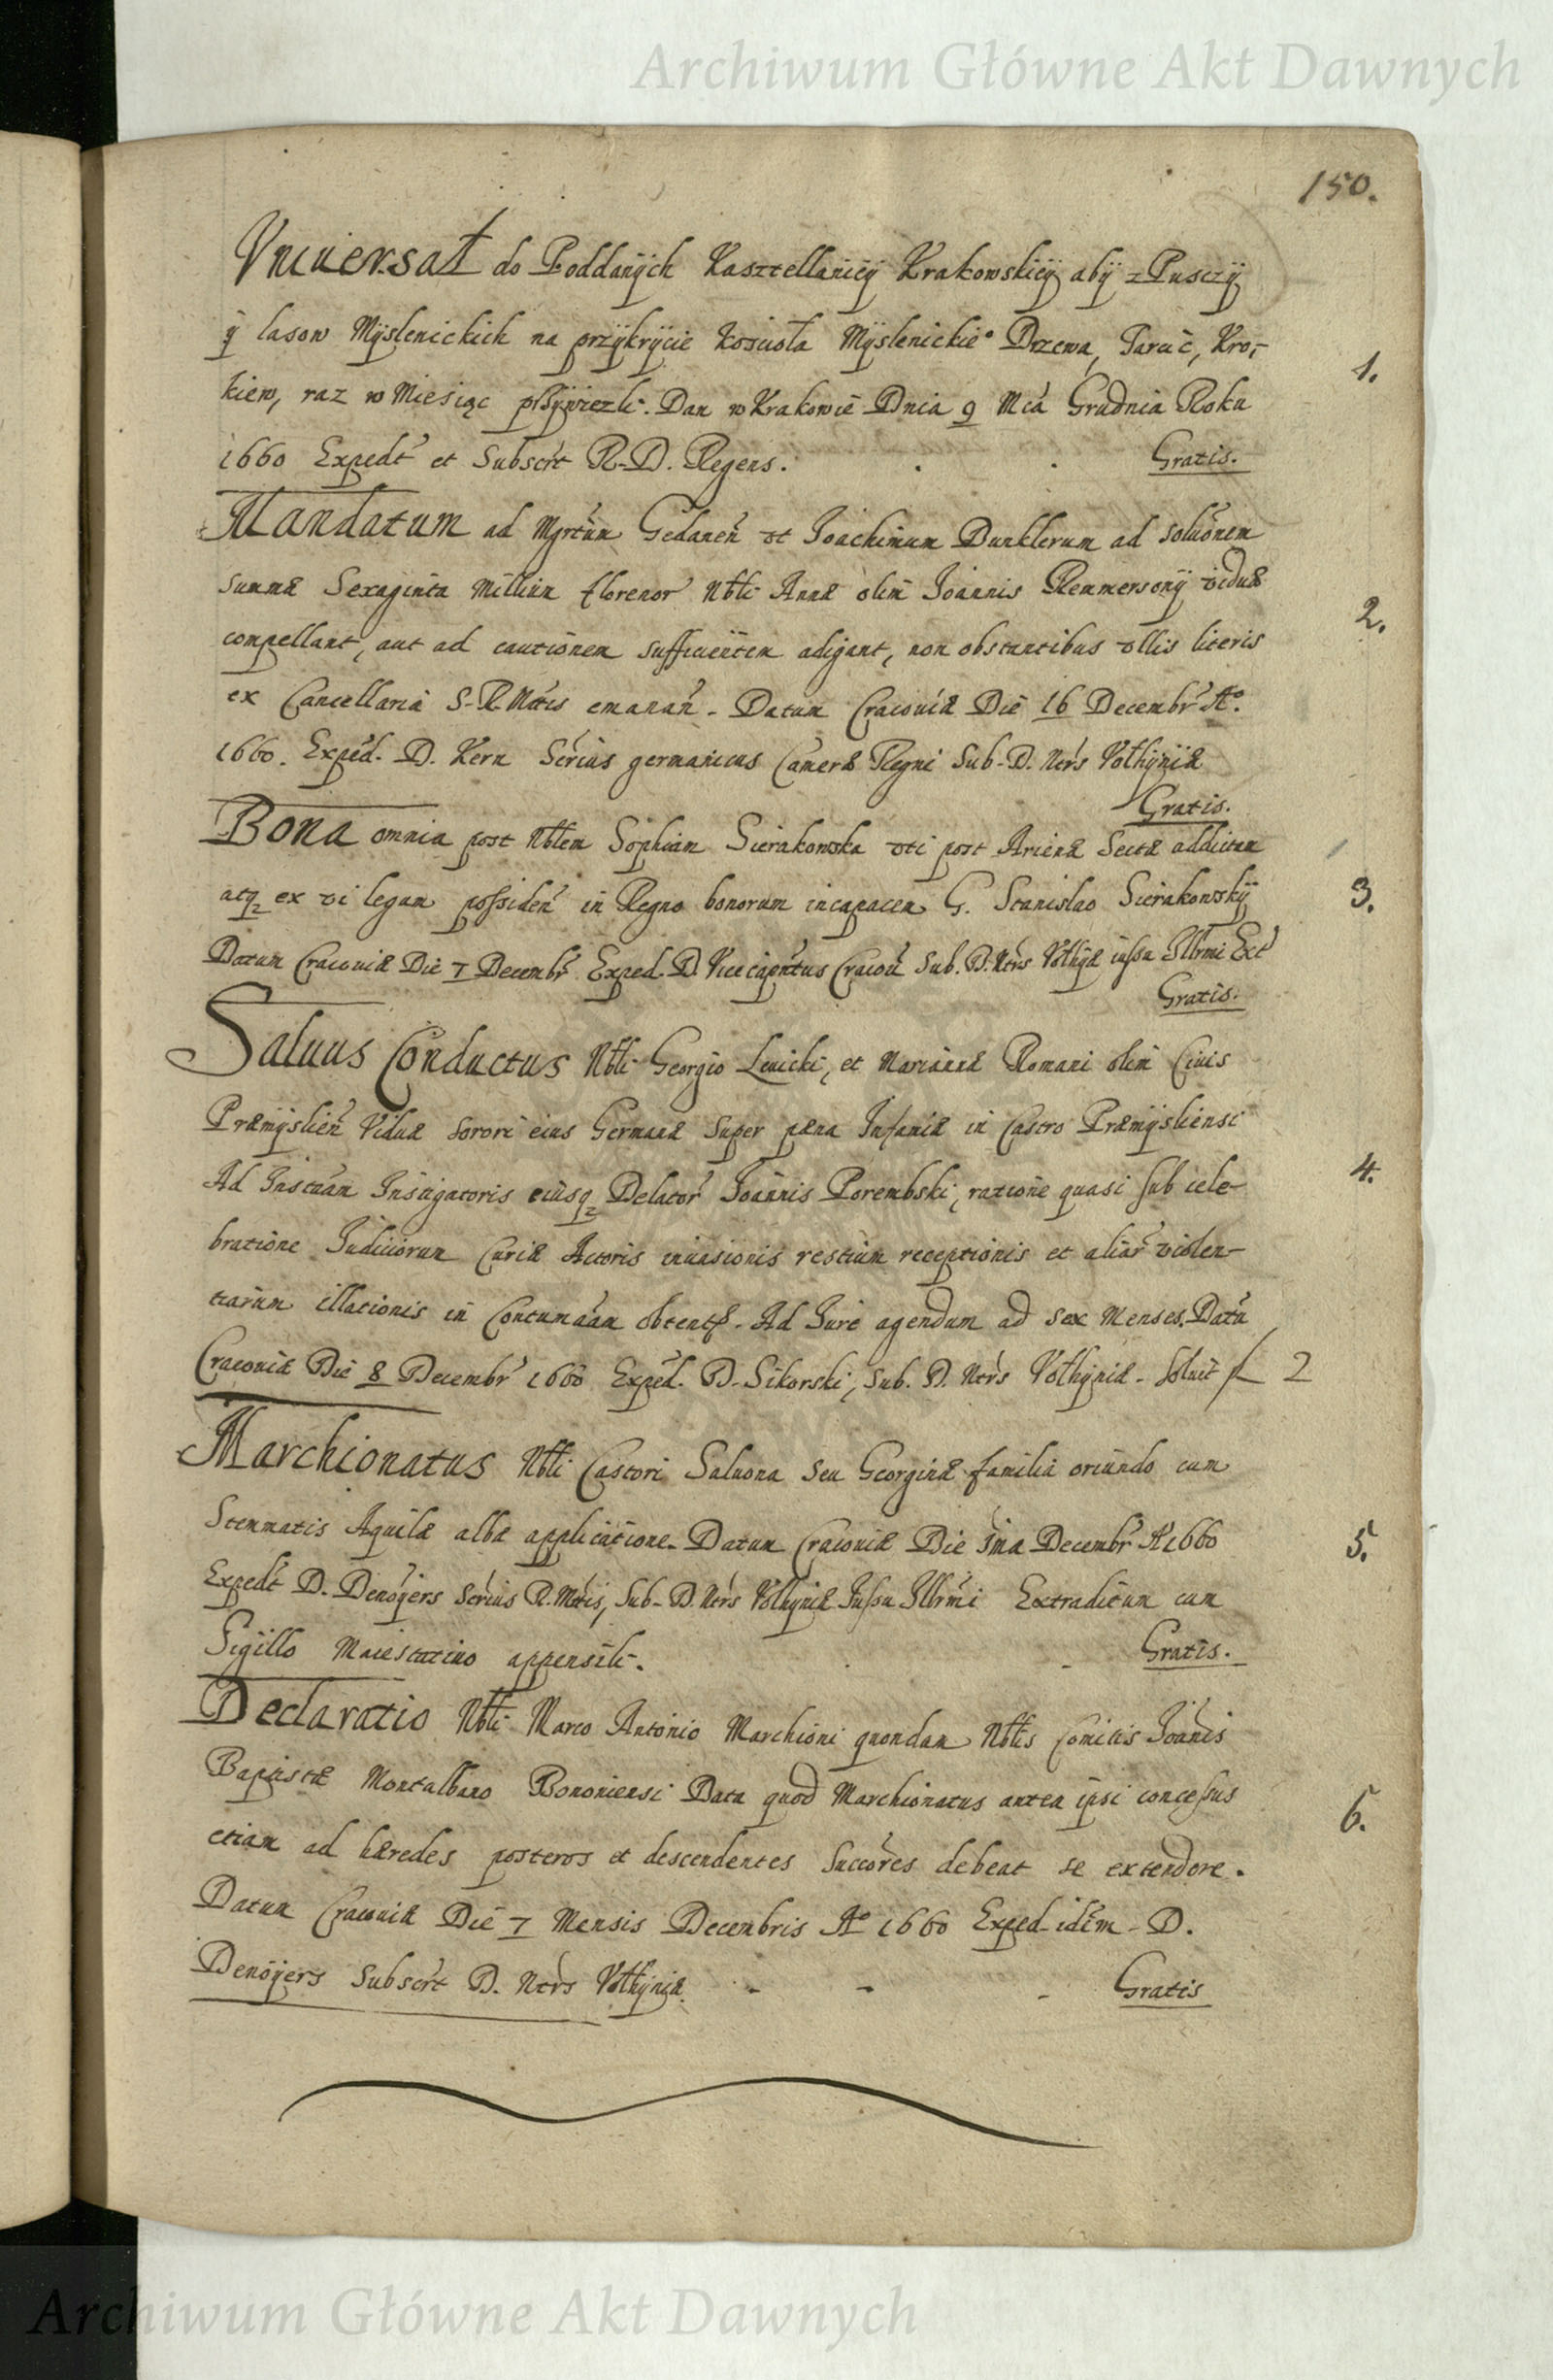 Archiwum Główne Akt Dawnych
150.
Vniuersał do Poddanÿch Kasztellanieÿ Krakowskieÿ abÿ z Pusczÿ
ÿ lasow Mÿslenickich na przÿkrÿcie Koscioła Mÿslenickie° Drzewa, Tarcic, Kro-
1.
kiew, raz w Miesiąc przÿwiezli. Dan w Krakowie Dnia 9 Mca Grudnia Roku
1660 Expedt et Subscrt R. D. Regens. Gratis.
Mandatum ad Mgrtum Gedanen vt Joachimum Dunklerum ad soluonem
summæ Sexaginta Millium florenor Nbli Annæ olim Joannis Remmersonÿ viduæ
2.
compellant, aut ad cautionem sufficientem adigant, non obstantibus vllis literis
ex Cancellaria S. R. Mtis emanan. Datum Cracouiæ Die 16 Decembr A°.
1660. Exped. D. Kern Scrius germanicus Cameræ Regni Sub. D. Ntrs Vołhÿniæ
Gratis.
Bona omnia post Nblem Sophiam Sierakowska vti post Arienæ Sectæ addictam
atq ex vi legum possiden in Regno bonorum incapacem G. Stanislao Sierakowskÿ
3.
Datum Cracouiæ Die 7 Decembr Exped. D. Vicecapntus Cracou Sub. D. Ntrs Vołhÿæ iussu Illrmi Exc
Gratis.
Saluus Conductus Nbli Georgio Leuicki, et Mariannæ Romani olim Ciuis
Præmÿslien Viduæ sorori eius Germanæ super pæna Infamiæ in Castro Præmÿsliensi
4.
Ad Instuam Instigatoris eiusq Delator Joannis Porembski, ratione quasi sub cele-
bratione Judiciorum Curiæ Actoris inuasionis restium receptionis et aliar violen-
tiarum illationis in Contumaam obtent. Ad Jure agendum ad sex Menses. Datu
Cracouiæ Die 8 Decembr 1660 Exped. D. Sikorski, Sub. D. Ntrs Vołhÿniæ. Soluit fl 2
Marchionatus Nbli Castori Saluona seu Georginæ familia oriundo cum
Stemmatis Aquilæ albæ applicatione. Datum Cracouiæ Die 3ma Decembr A° 1660
5.
Expedt D. Denoÿers Scrius R. Mtis, Sub. D. Ntrs Vołhÿniæ Jussu Illrmi Extraditum cum
Sigillo Maiestatico appensili. Gratis.
Declaratio Nbli Marco Antonio Marchioni quondam Nblis Comitis Joannis
Baptistæ Montalbano Bononiensi Data quod Marchionatus antea ipsi concessus
6.
etiam ad hæredes posteros et descendentes succores debeat se extendere.
Datum Cracouiæ Die 7 Mensis Decembris A° 1660 Exped. idem. D.
Denoÿers Subscrt D. Ntrs Vołhÿniæ. Gratis
Archiwum Główne Akt Dawnych